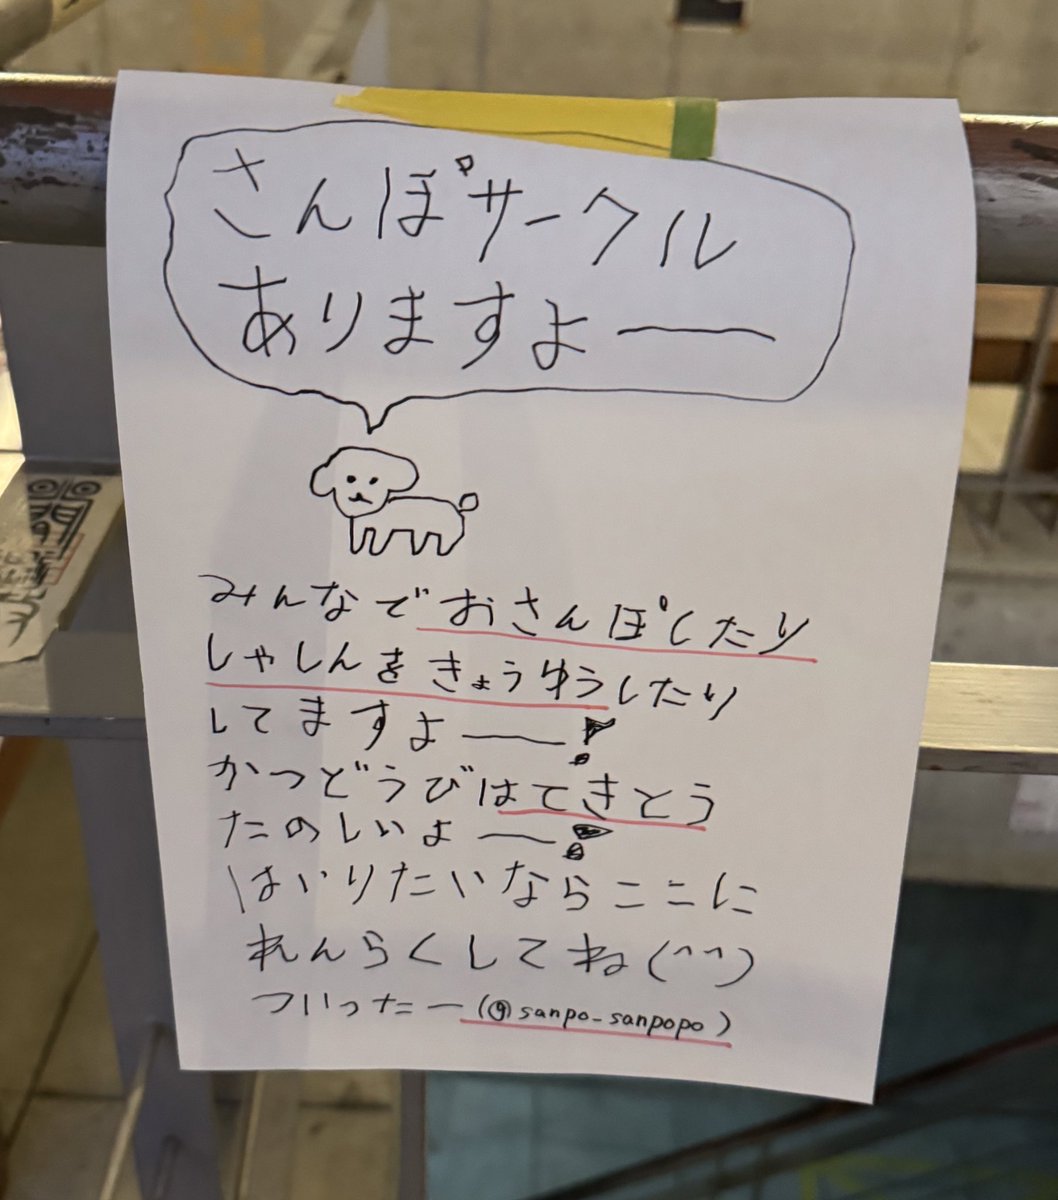 さんぽサークル
ありますよー
みんなでおさんぽしたり
しゃしんをきょうゆうしたり
してますよー!
かつどうびはてきとう
たのしいよー!
はいりたいならここに
れんらくしてね(^^)
ついったー(@sanpo_sanpopo)